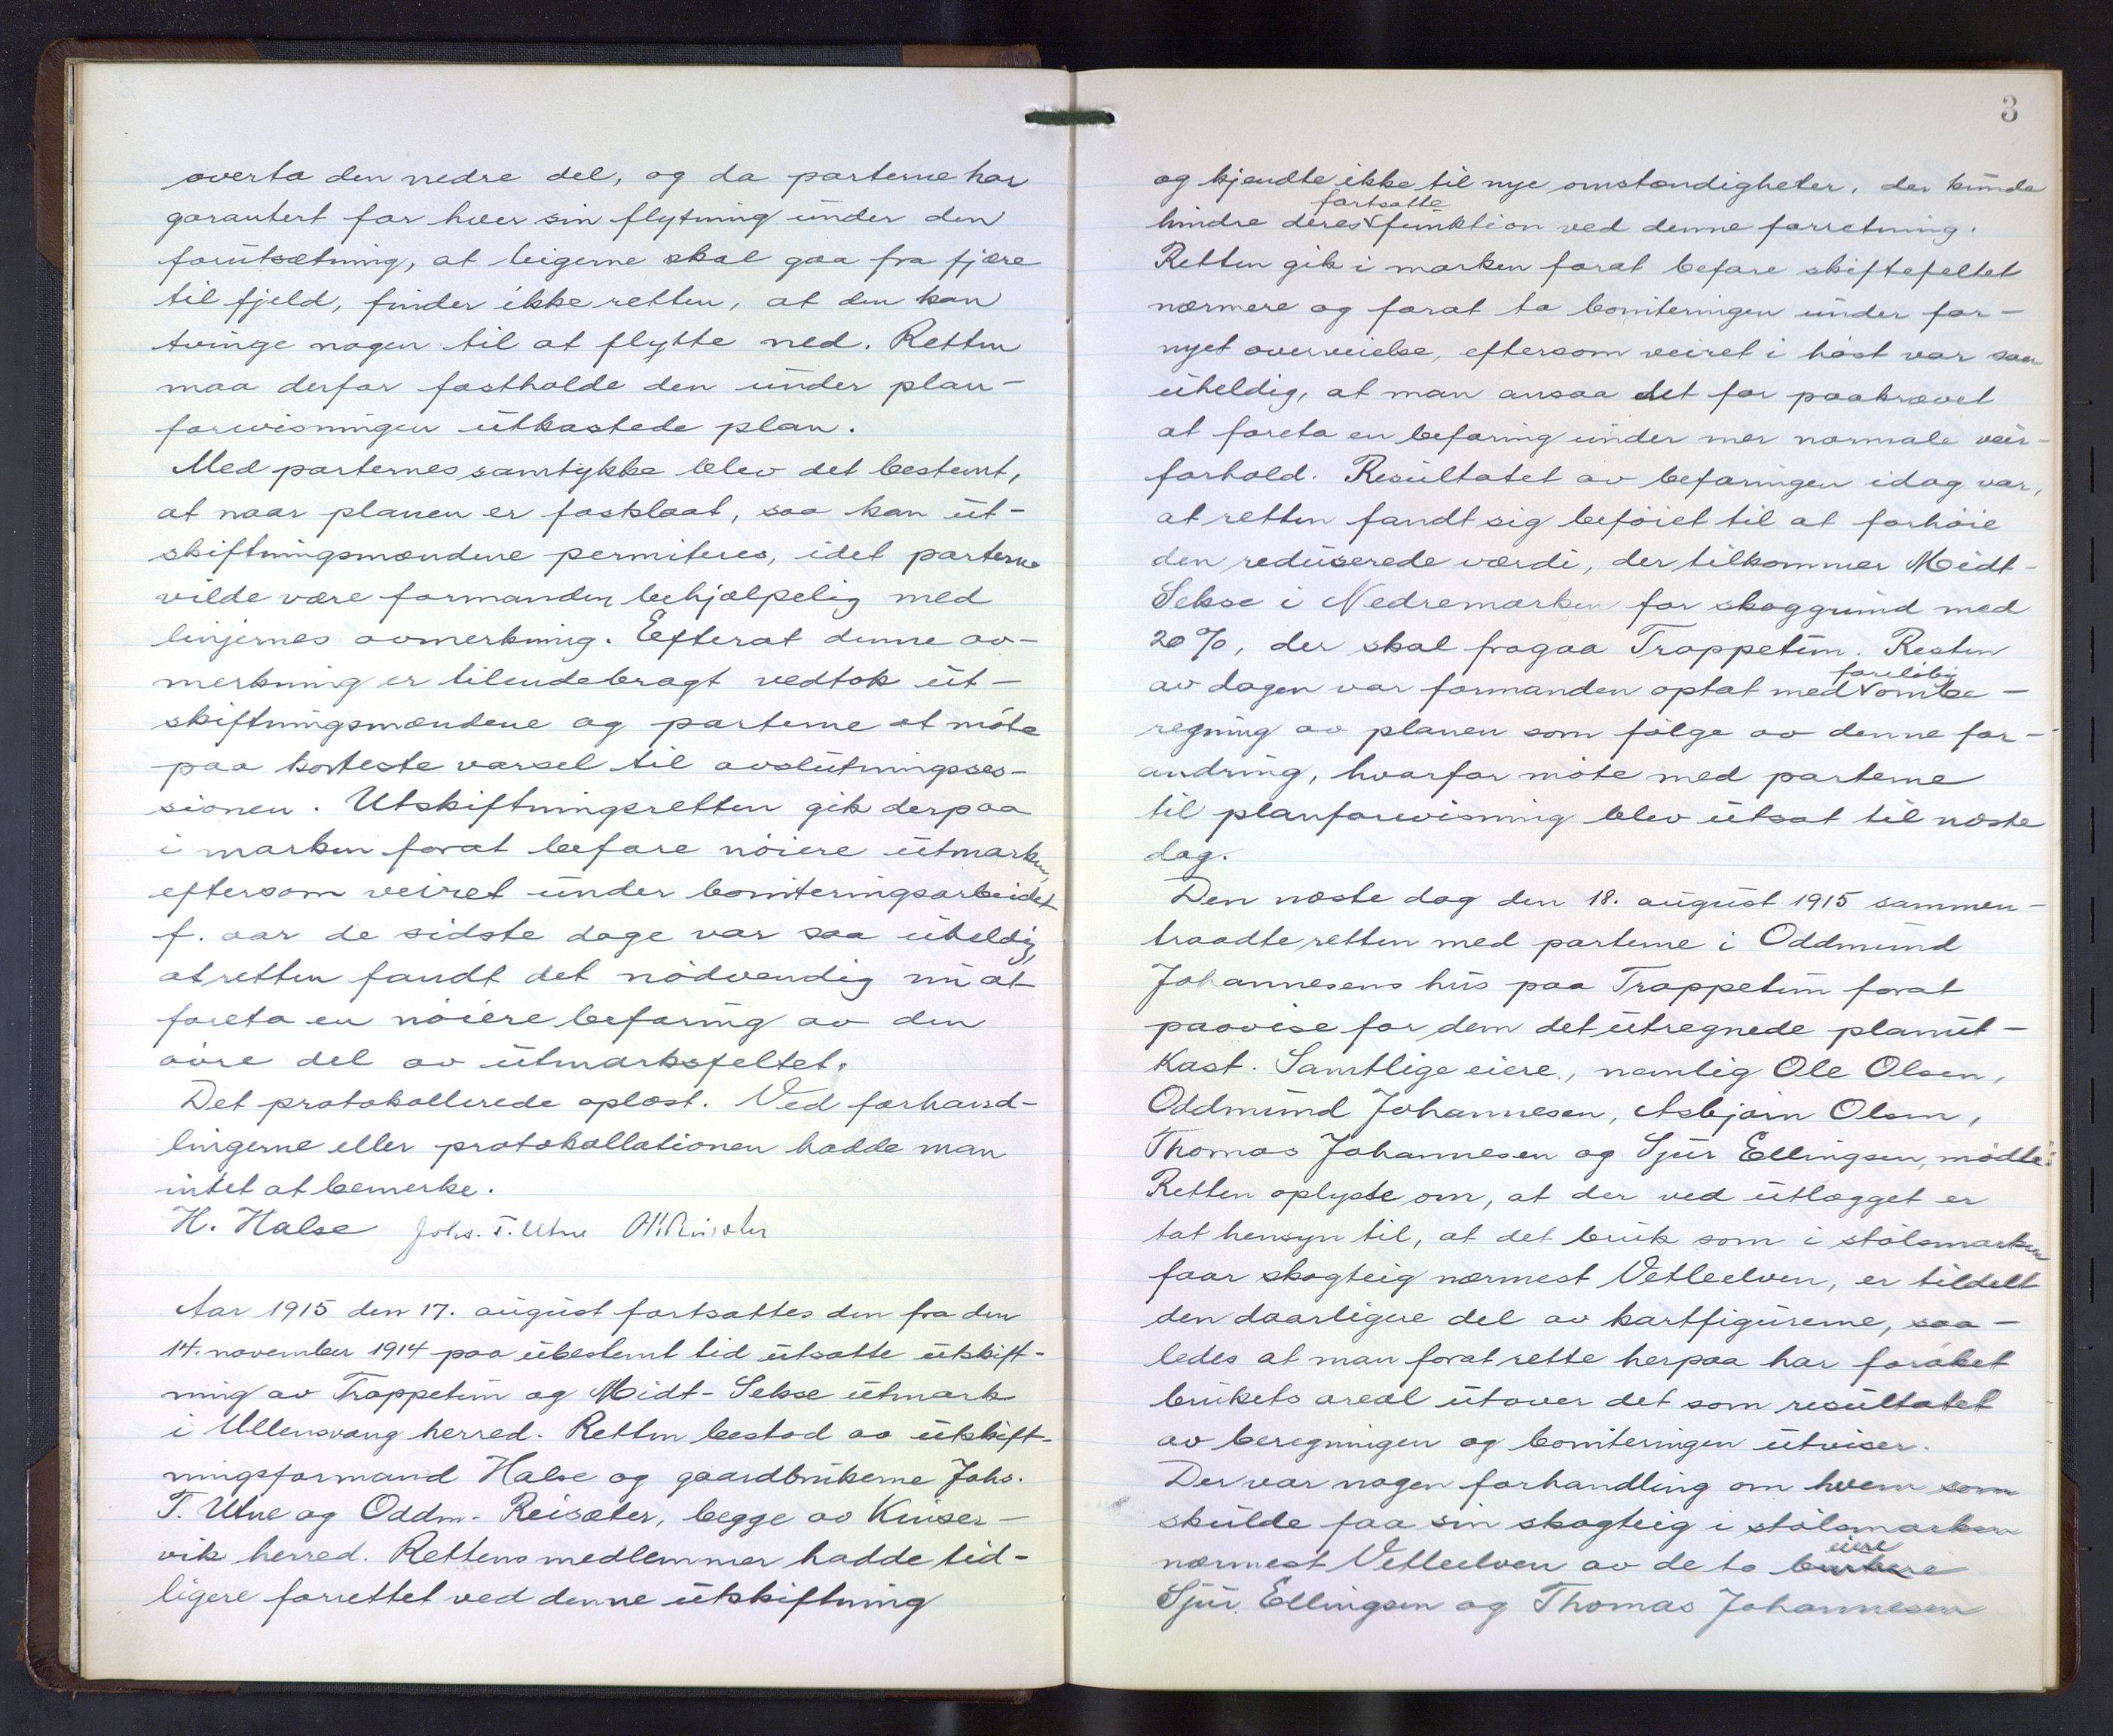 overta den nedre del, og da parterne har
garantert for hver sin flytning under den
forutsætning, at teigerne skal gaa fra fjære
til fjeld, finder ikke retten, at den kan
tvinge nogen til at flytte ned. Retten
maa derfor fastholde den under plan-
forevisningen utkastede plan.
Med parternes samtykke blev det bestemt,
at naar planen er fastslaat, saa kan ut-
skiftningsmændene permiteres, idet parterne
vilde være formanden behjælpelig med
linjernes avmerkning. Efterat denne av-
merkning er tilendebragt vedtok ut-
skiftningsmændene og parterne at møte
paa korteste varsel til avslutningsses-
sionen. Utskiftningsretten gik derpaa
i marken forat befare nøiere utmarken,
eftersom veiret under boniteringsarbeidet
f. aar de sidste dage var saa uheldig,
at retten fandt det nødvendig nu at
foreta en nøiere befaring av den
øvre del av utmarksfeltet.
Det protokollerede oplæst. Ved forhand-
lingerne eller protokollationen hadde man
intet at bemerke.
H. Halse Johs. T. Utne O. Reisæter
Aar 1915 den 17. august fortsattes den fra den
14. november 1914 paa ubestemt tid utsatte utskift-
ning av Trappetun og Midt-Sekse utmark
i Ullensvang herred. Retten bestod av utskift-
ningsformand Halse og gaardbrukerne Johs.
T. Utne og Oddm. Reisæter, begge av Kinser-
vik herred. Rettens medlemmer hadde tid-
ligere forrettet ved denne utskiftning
3
og kjendte ikke til nye omstændigheter, der kunde
fortsatte
hindre deres funktion ved denne forretning.
Retten gik i marken forat befare skiftefeltet
nærmere og forat ta boniteringen under for-
nyet overveielse, eftersom veiret i høst var saa
uheldig, at man ansaa det for paakrævet
at foreta en befaring under mer normale veir-
forhold. Resultatet av befaringen idag var,
at retten fandt sig beføiet til at forhøie
den reduserede værdi, der tilkommer Midt-
Sekse i Nedremarken for skoggrund med
20%, der skal fragaa Trappetun. Resten
foreløbig
av dagen var formanden optat med ombe-
regning av planen som følge av denne for-
andring, hvorfor møte med parterne
til planforevisning blev utsat til næste
dag.
Den næste dag den 18. august 1915 sammen-
traadte retten med parterne i Oddmund
Johannesens hus paa Trappetun forat
paavise for dem det utregnede planut-
kast. Samtlige eiere, nemlig Ole Olsen,
Oddmund Johannesen, Asbjørn Olsen,
Thomas Johannesen og Sjur Ellingsen, mødte.
Retten oplyste om, at der ved utlægget er
tat hensyn til, at det bruk som i stølsmarken
faar skogteig nærmest Vetleelven, er tildelt
den daarligere del av kartfigurerne, saa-
ledes at man forat rette herpaa har forøket
brukets areal utover det som resultatet
av beregningen og boniteringen utviser.
Der var nogen forhandling om hvem som
skulde faa sin skogteig i stølsmarken
eiere
nærmest Vetleelven av de to brukere
Sjur Ellingsen og Thomas Johannesen